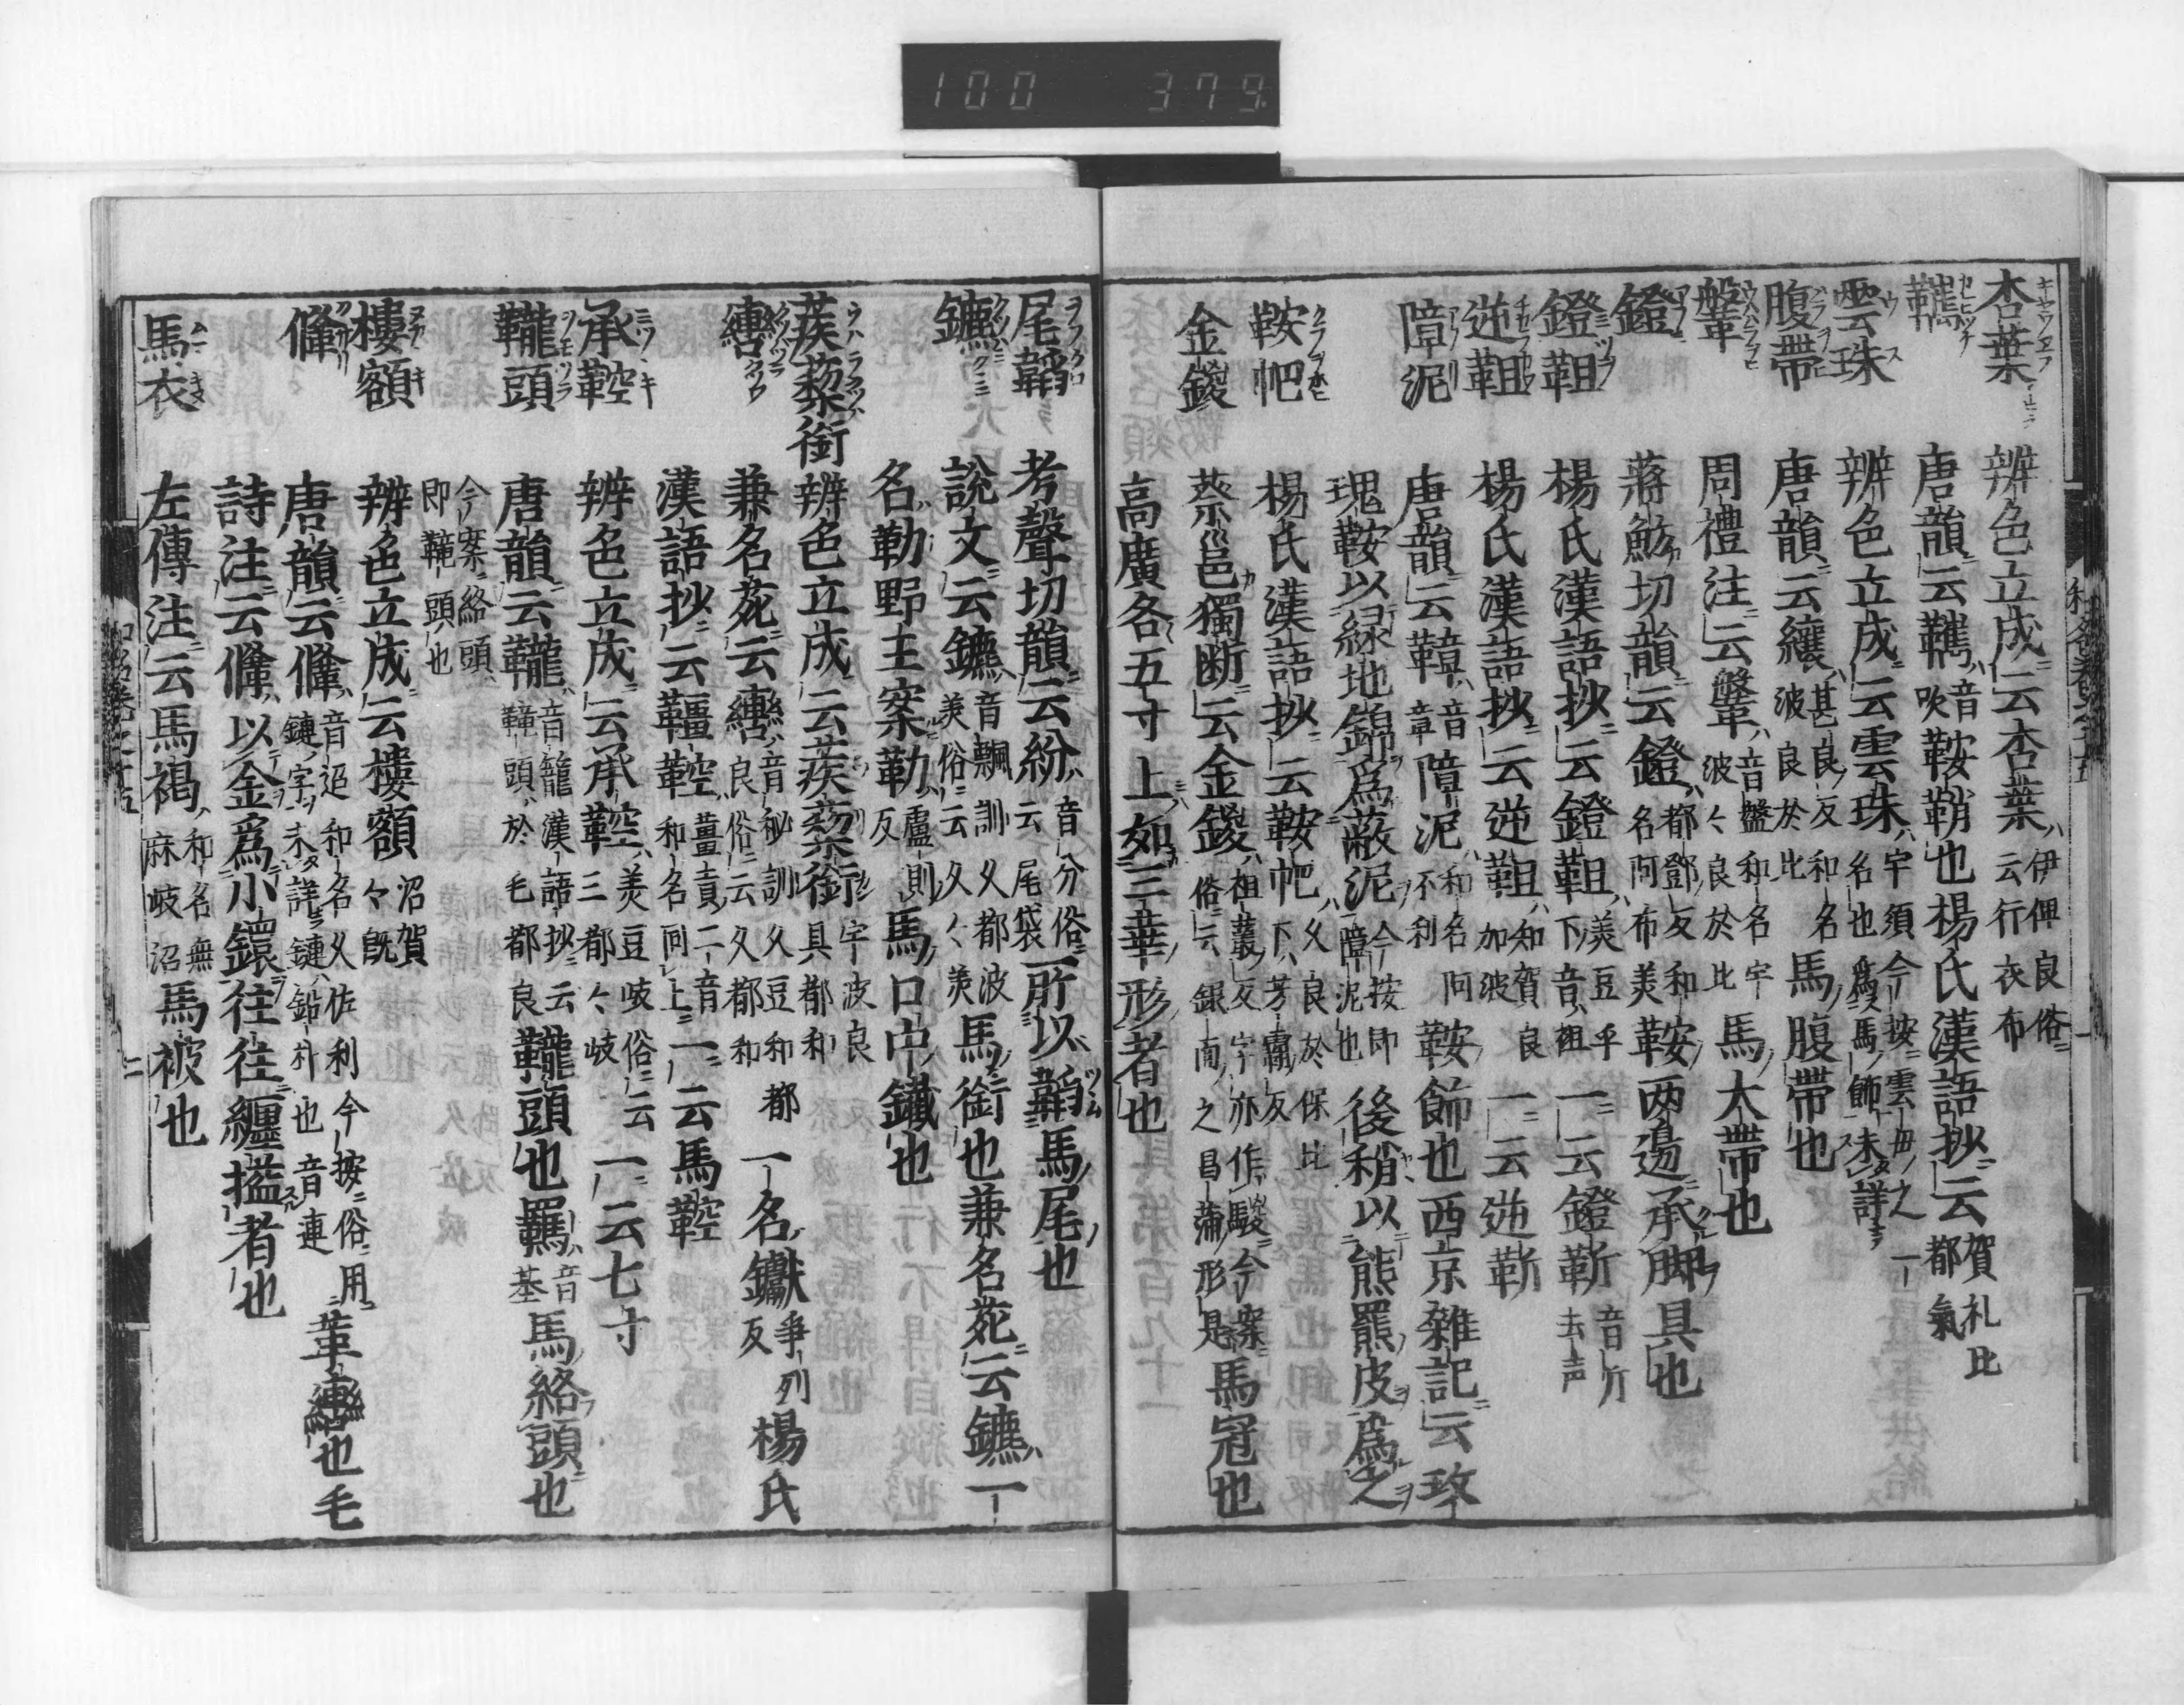 100 379
杏葉 辨色立成云杏葉 伊俱良俗云行衣布
韉 唐韻云韉 音吹 鞍鞘也楊氏漢語抄云 賀礼比都氣
雲珠 辨色立成云雲珠 宇須今按雲母之一名也爲馬飾未詳
腹帶 唐韻云纕 甚良反和名波良於比 馬腹帶也
鞶 周禮注云鞶 音盤和名宇波々良於比 馬大帶也
鐙 蔣魴切韻云鐙 都鄧反和名阿布美 鞍兩邊承脚具也
鐙靻 楊氏漢語抄云鐙靻 美豆乎下音祖 一云鐙靳 音斤去声
逆靻 楊氏漢語抄云逆靻 知賀良加波 一云逆靳
障泥 唐韻云鞍 音章 障泥 和名阿不利 鞍飾也西京雜記云玫
瑰鞍以緑地錦爲蔽泥 今按即障泥也 後稍以熊羆皮爲之
鞍帊 楊氏漢語抄云鞍帊 久良於保比下芳霸反
金鍐 蔡邕獨断云金鍐 祖叢反字亦作鬉今案俗云銀面之昌蒲形是 馬冠也
高廣各五寸上如三華形者也
尾韜 考聲切韻云紛 音分俗云尾袋 所以韜馬尾也
鑣 說文云鑣 音飄訓久都波美俗云久々美 馬銜也兼名苑云鑣一
名勒野王案勒 盧則反 馬口中鐵也
蒺䔧銜 辨色立成云蒺䔧銜 宇波良具都和
轡 兼名苑云轡 音秘訓久豆和都良俗云久都和 一名钀 爭列反 楊氏
漢語抄云韁鞚 薑貢二音和名同上 一云馬鞚
承鞚 辨色立成云承鞚 美豆岐俗云三都々岐 一云七寸
䪊頭 唐韻云䪊 音籠漢語抄云䪊頭於毛都良 䪊頭也羈 音基 馬絡頭也
今案絡頭即䪊頭也
樓額 辨色立成云樓額 沼賀々既
鞗 唐韻云鞗 音迢和名久佐利今按俗用鏈字未詳鏈鉛朴也音連 革轡也毛
詩注云鞗以金爲小鐶往往纏搤者也
馬衣 左傳注云馬褐 和名無麻岐沼 馬被也